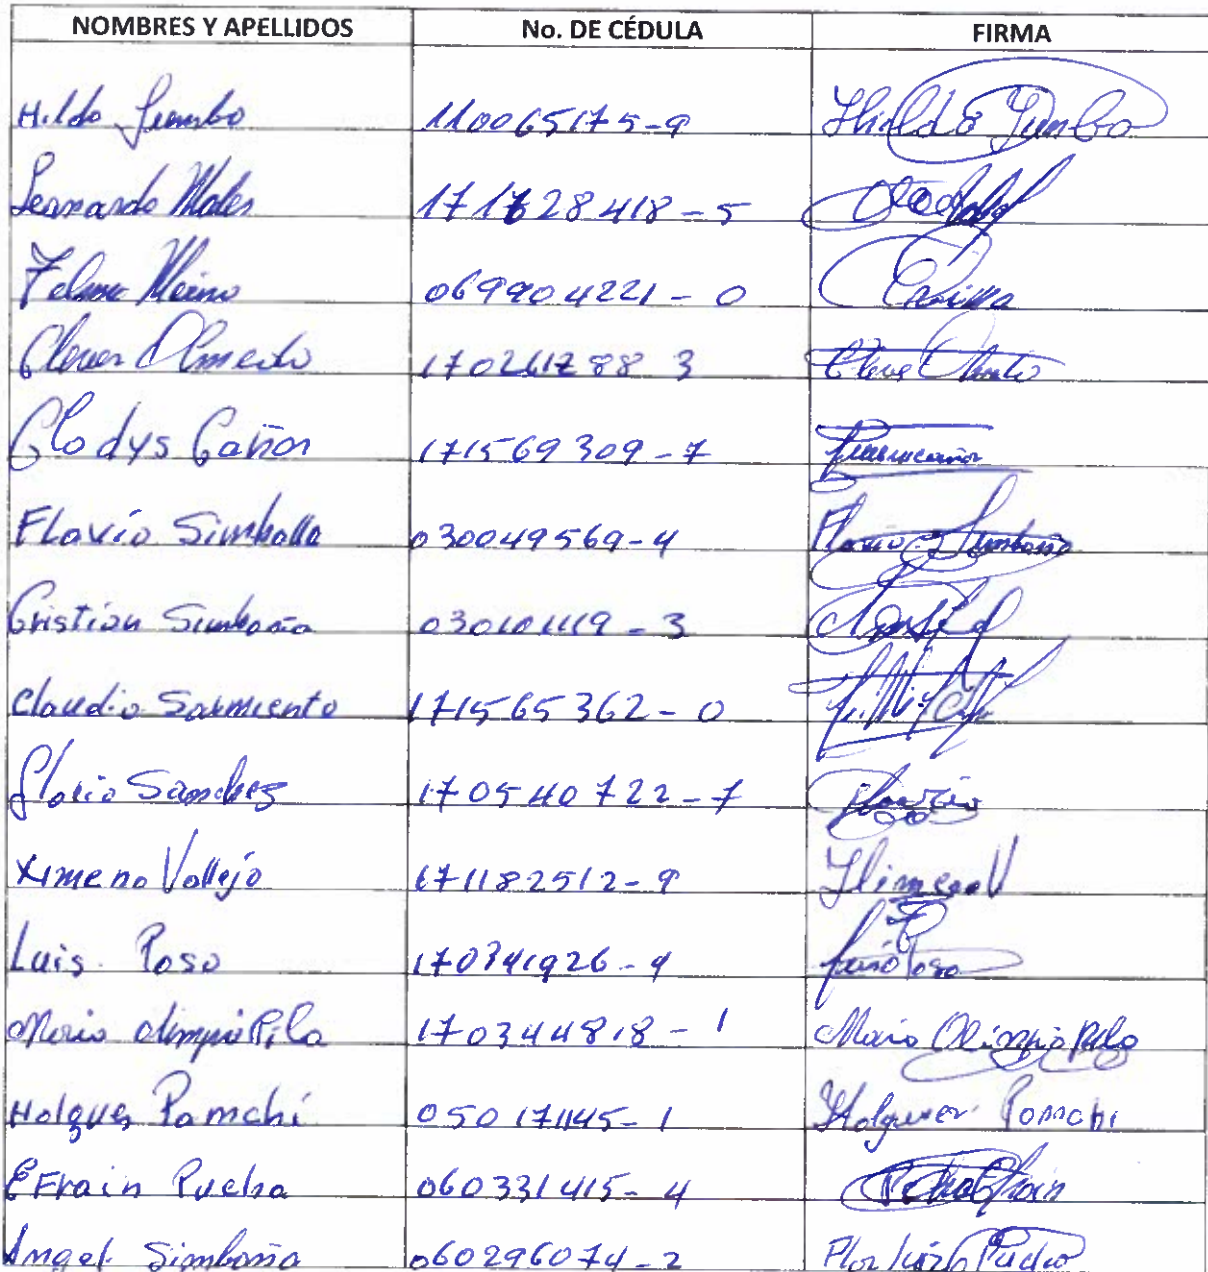 NOMBRES Y APELLIDOS No. DE CÉDULA FIRMA
Hildo Jumbo 110065175-9 Hildo Jumbo
Leonardo Males 171728418-5
069904221-0
Clever Olmedo 170261288 3 Cleve Olmedo
Gladys Cañar 171569309-7
Flavio Simbaña 030049569-4 Flavio Simbaña
Cristian Simbaña 030101119-3
Claudio Sarmiento 171565362-0
Gloria Sanchez 170540722-7 Gloria
Ximena Vallejo 171182512-9 Ximena V
Luis Poso 170341926-9 Luis Poso
Maria Olimpia Pila 170344818-1 Maria Olimpia Pila
Holguer Pamchi 050171145-1 Holguer Pamchi
EFrain Pucha 060331415-4 Pucha Efrain
Angel Simbaña 060296074-2 Flor